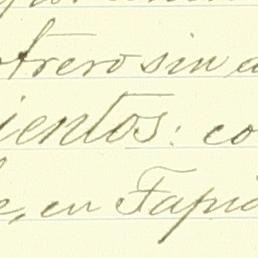 trero sin a
ientos: co
e, en Tapia